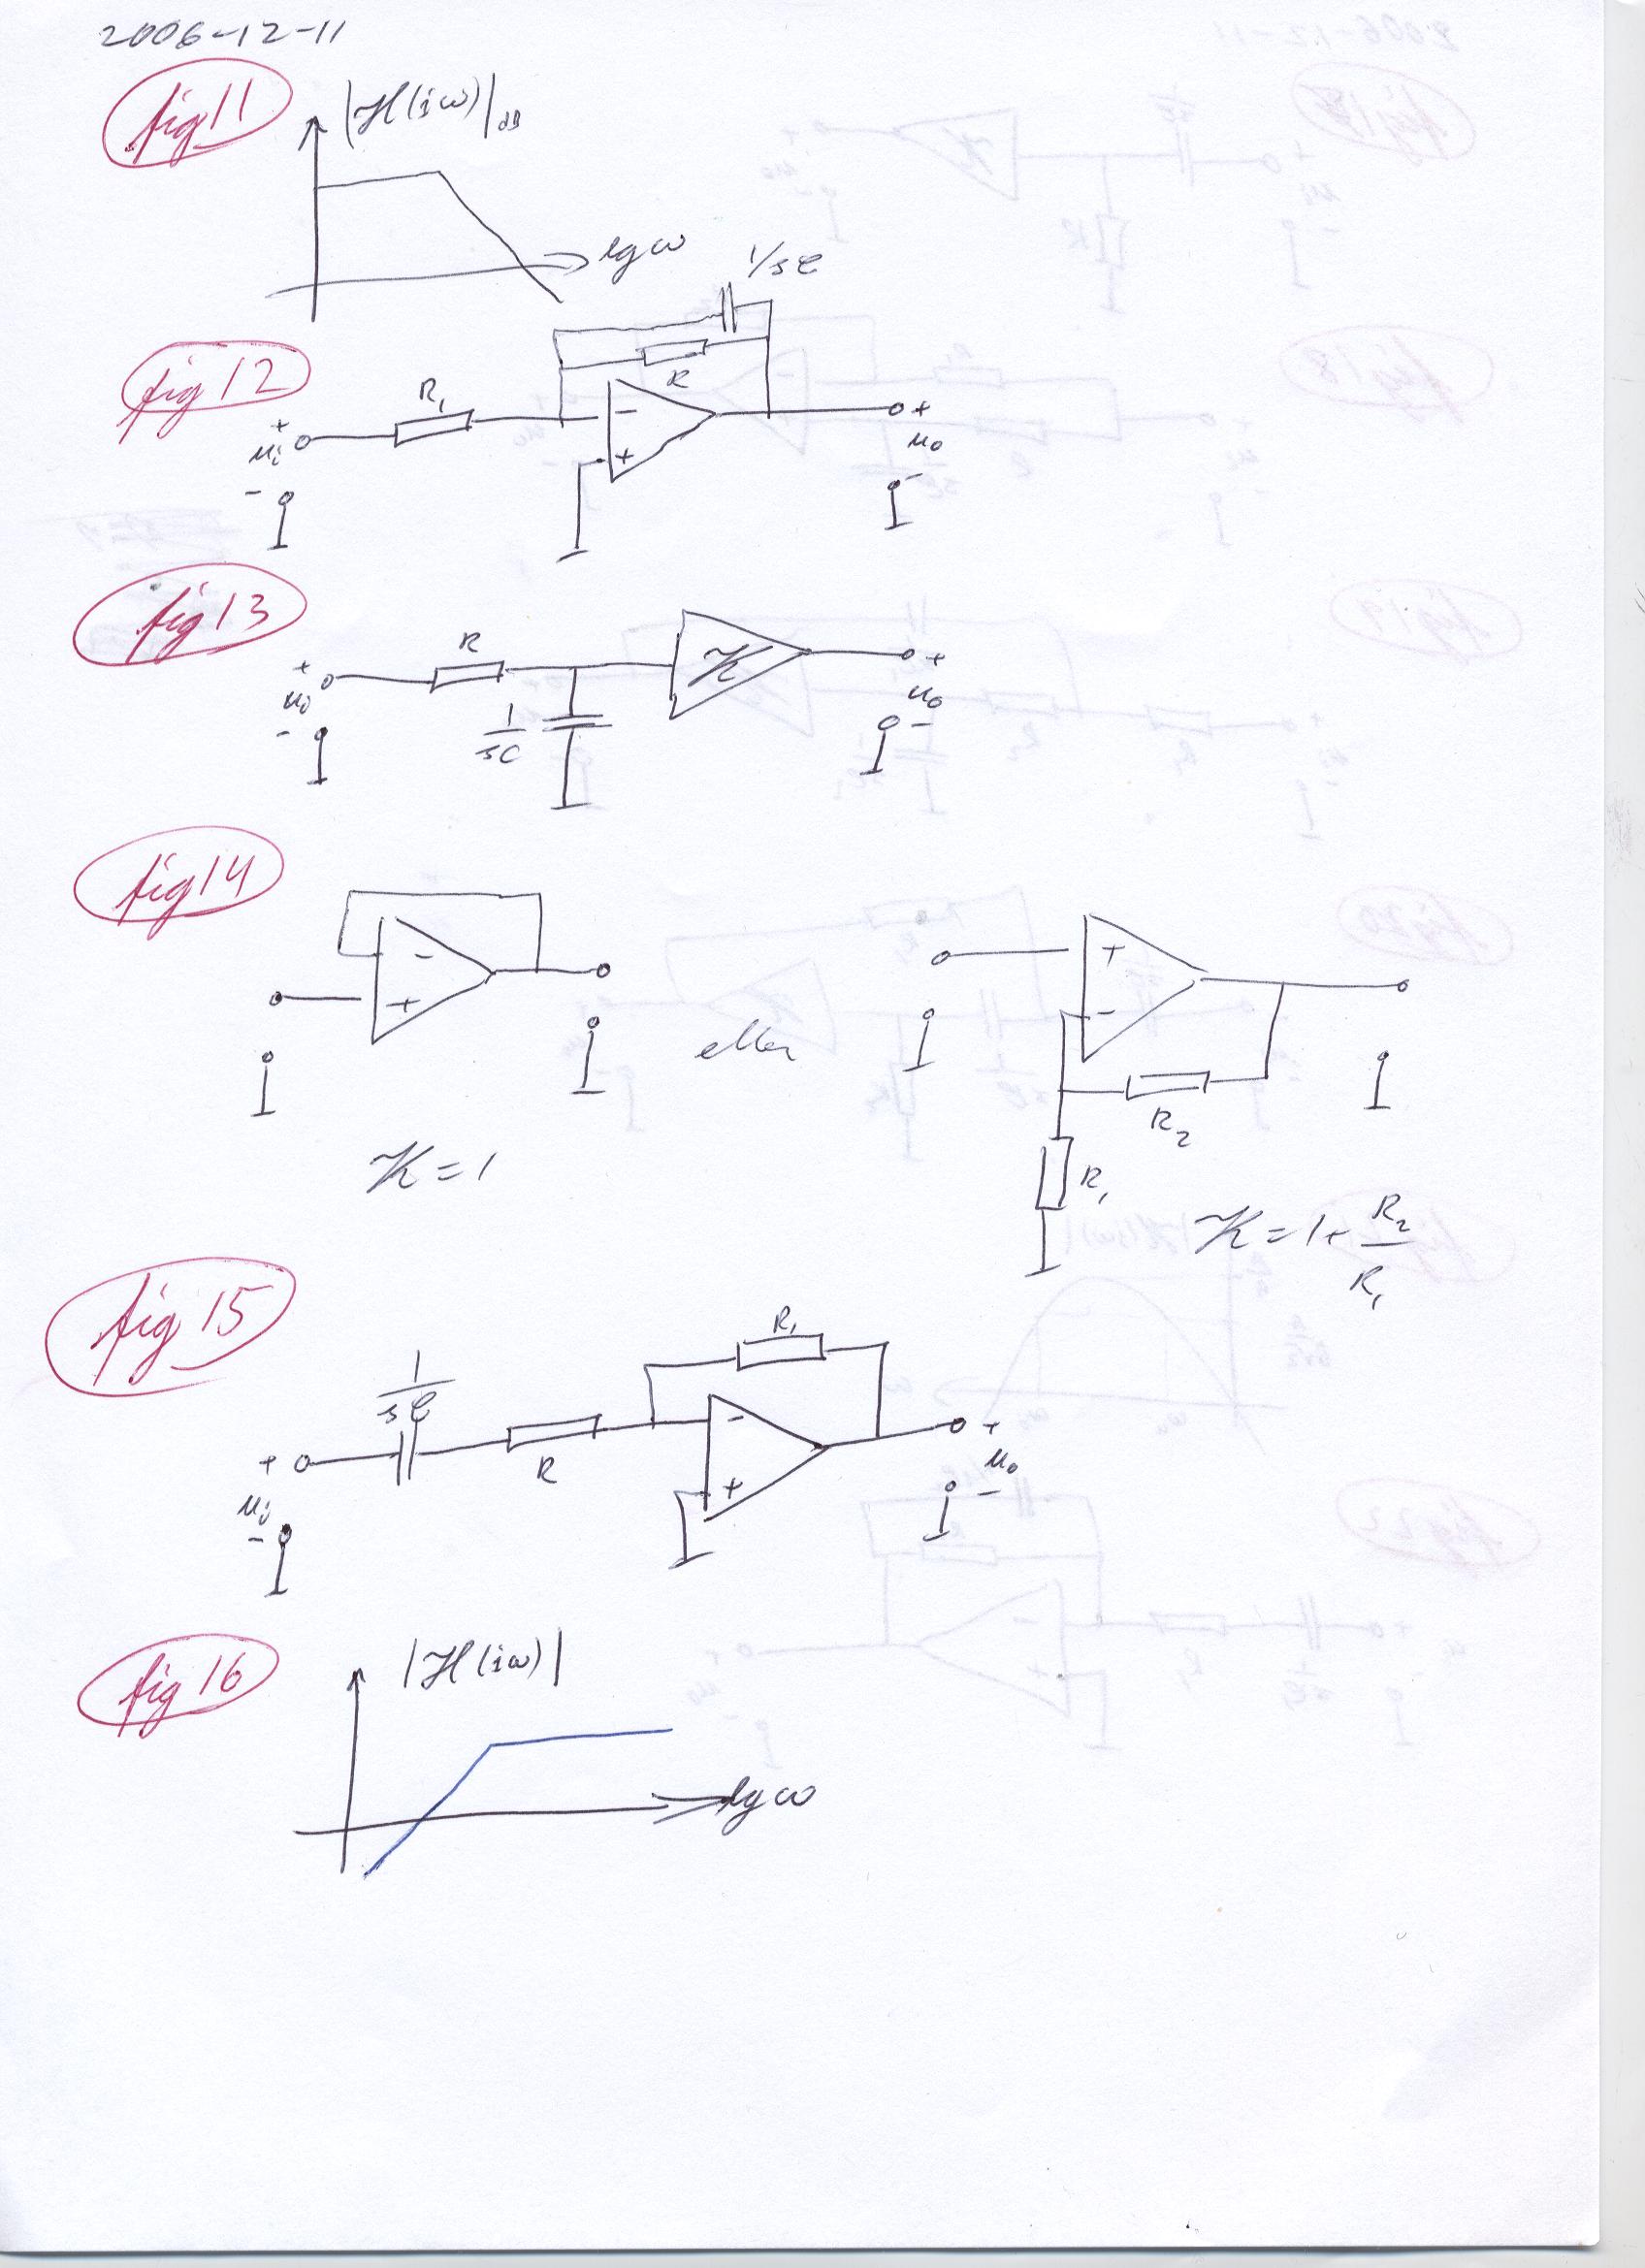 2006-12-11
fig 11
|H(iω)|dB
lg ω
fig 12
1/sC
R
R1
-
+
+
ui
-
+
u0
-
fig 13
R
K
+
ui
-
1/sC
+
u0
-
fig 14
-
+
eller
+
-
R2
R1
K = 1
K = 1 + R2/R1
fig 15
R1
1/sC
R
-
+
+
ui
-
+
u0
-
fig 16
|H(iω)|
lg ω